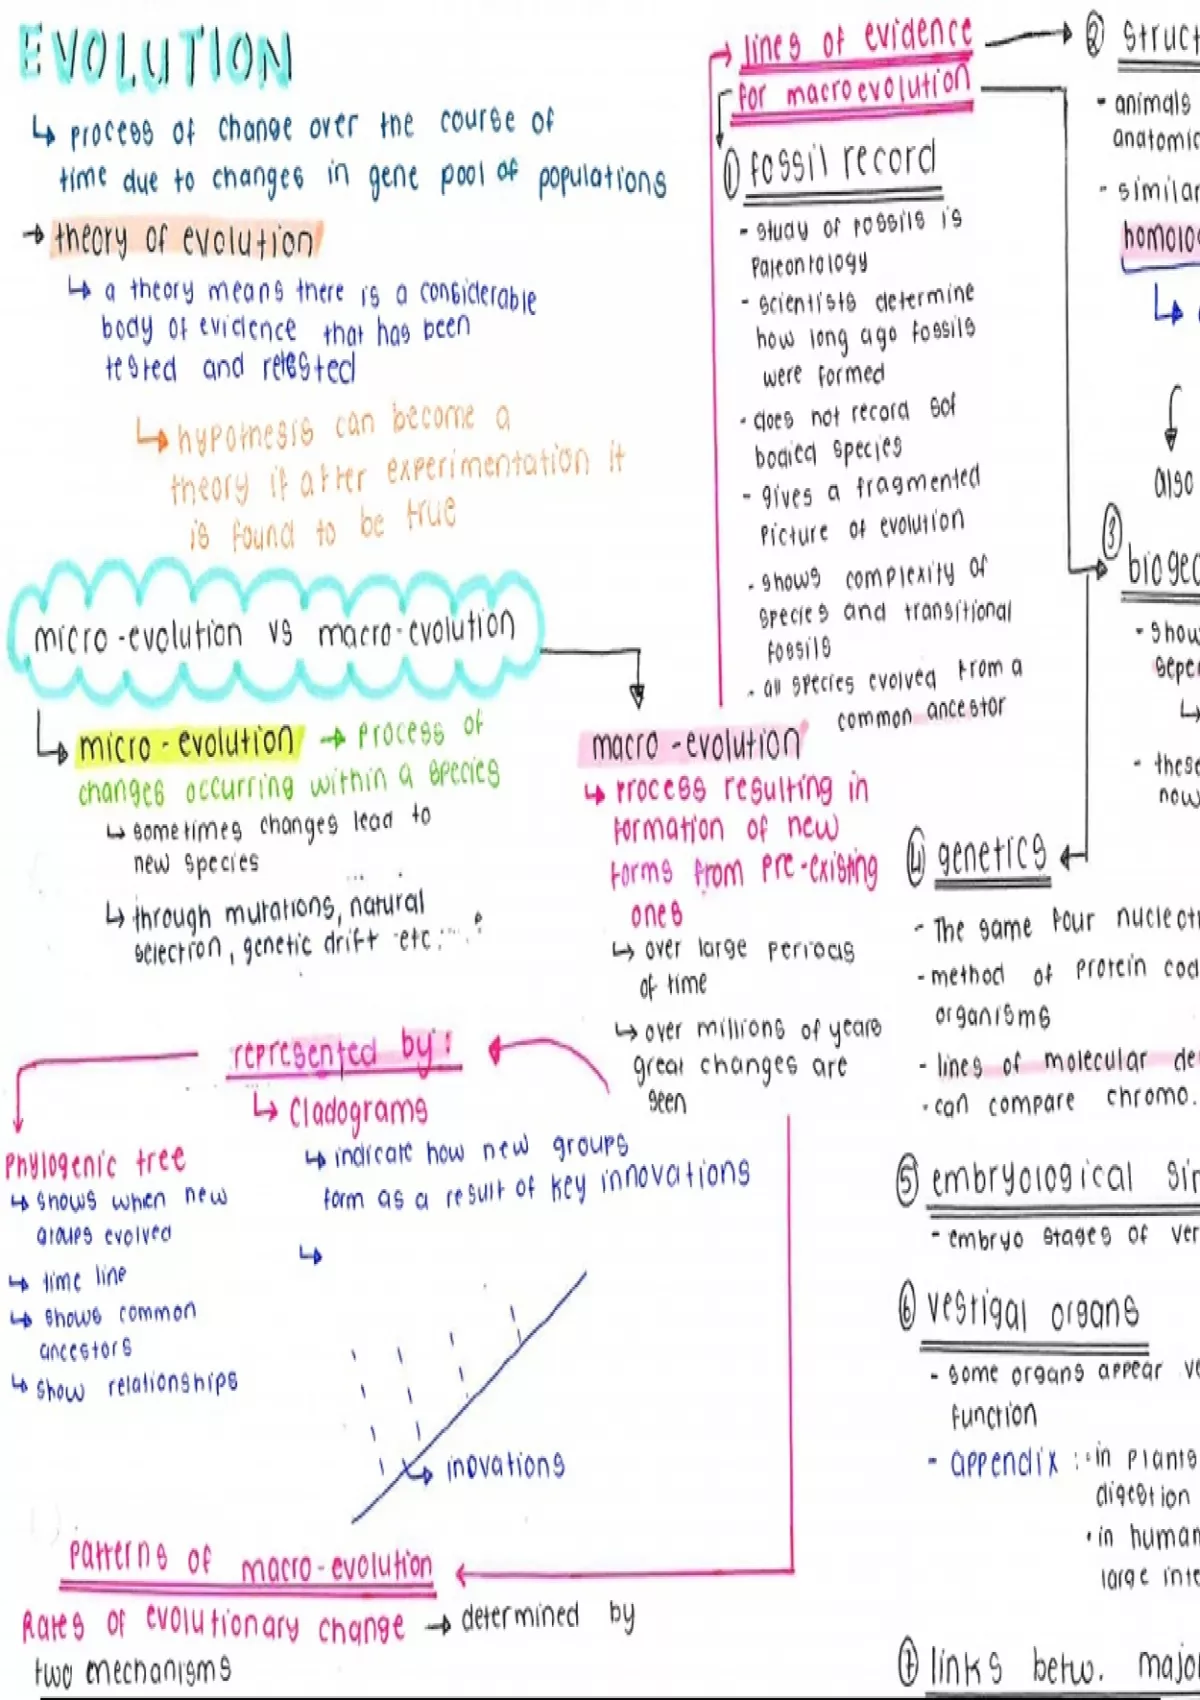 EVOLUTION
↳ process of change over the course of
time due to changes in gene pool of populations
→ theory of evolution
↳ a theory means there is a considerable
body of evidence that has been
tested and retested
↳ hypothesis can become a
theory if after experimentation it
is found to be true
micro-evolution vs macro-evolution
↳ micro-evolution → process of
changes occurring within a species
↳ sometimes changes lead to
new species
↳ through mutations, natural
selection, genetic drift etc....
macro-evolution
↳ process resulting in
formation of new
forms from pre-existing
ones
↳ over large periods
of time
↳ over millions of years
great changes are
seen
represented by:
↳ Cladograms
↳ indicate how new groups
form as a result of key innovations
↳
inovations
Phylogenic tree
↳ shows when new
groups evolved
↳ time line
↳ shows common
ancestors
↳ show relationships
Patterns of macro-evolution
Rates of evolutionary change → determined by
two mechanisms
lines of evidence
for macroevolution
① fossil record
- study of fossils is
paleontology
- scientists determine
how long ago fossils
were formed
- does not record sof
bodied species
- gives a fragmented
picture of evolution
- shows complexity of
species and transitional
fossils
- all species evolved from a
common ancestor
② struct
- animals
anatomic
- similar
homolog
↳
also
③ biogeo
- show
seper
↳
- these
now
④ genetics
- The same four nucleot
- method of protein cod
organisms
- lines of molecular de
- can compare chromo.
⑤ embryological sim
- embryo stages of ver
⑥ vestigal organs
- some organs appear ve
function
- appendix : • in plants
digestion
• in human
large inte
⑦ links betw. major